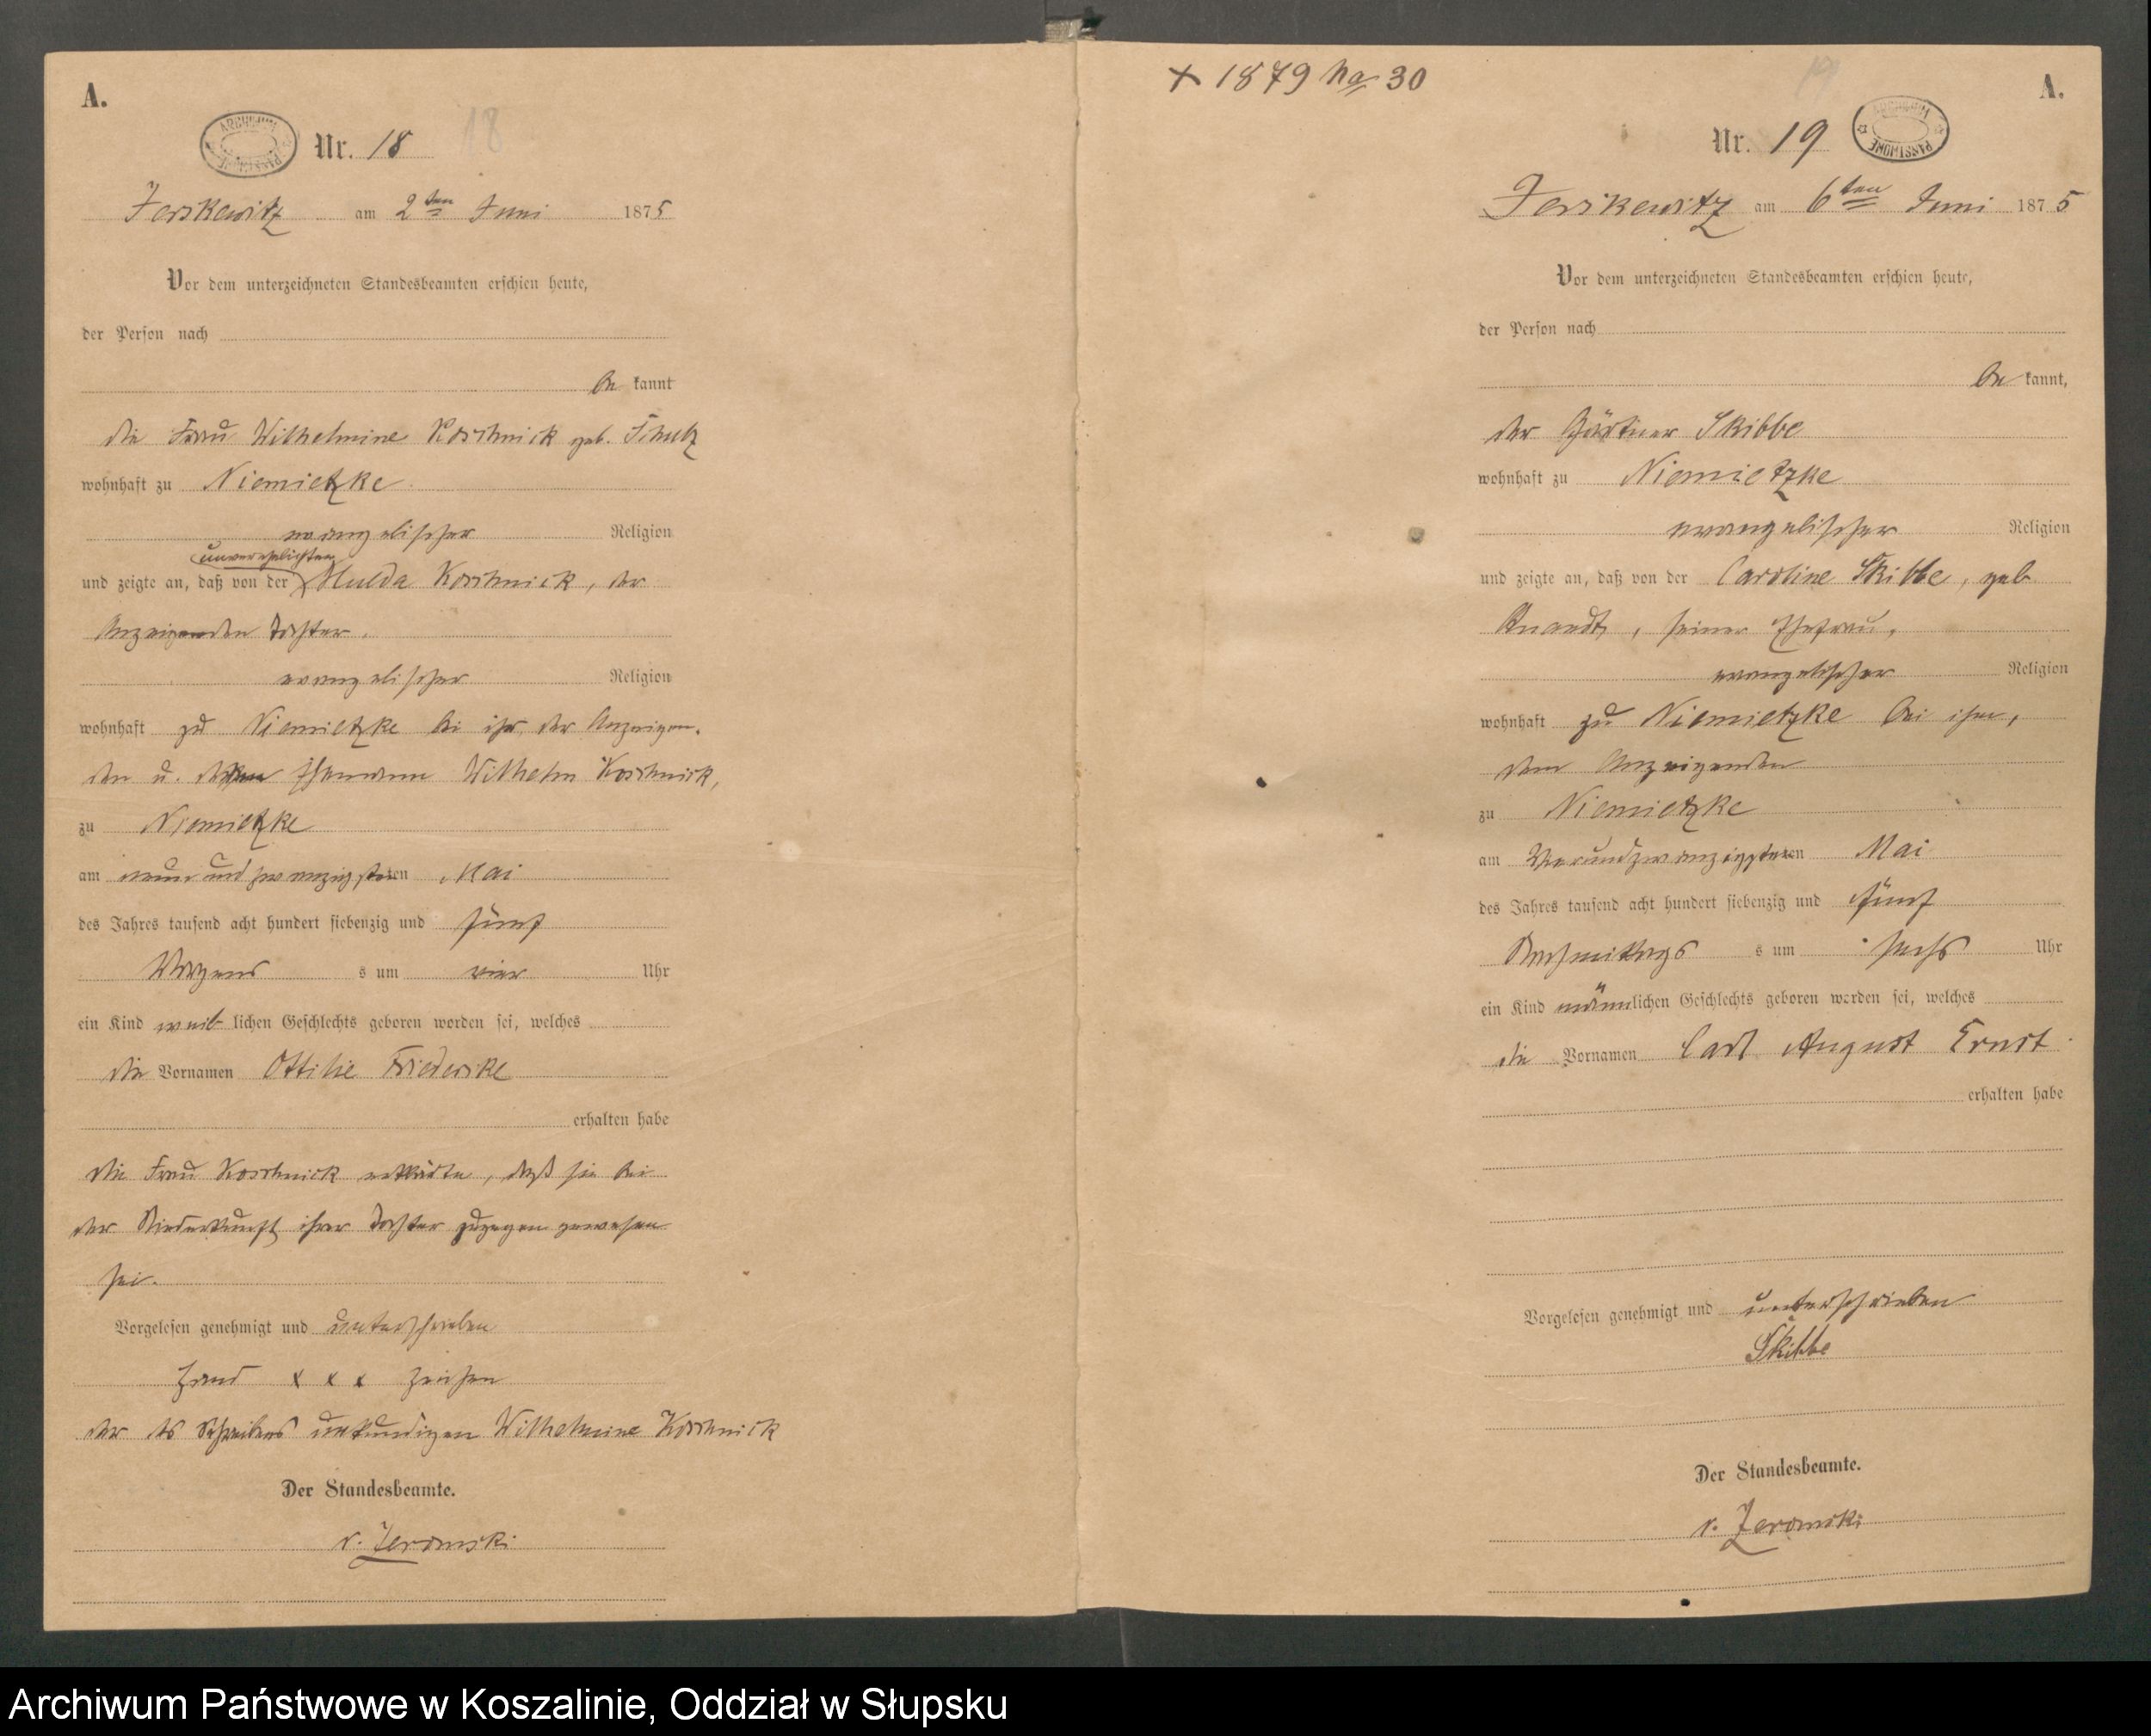 A.
ARCHIWUM PAŃSTWOWE
Nr. 18
18
Jerskewitz am 2ten Juni 1875
Vor dem unterzeichneten Standesbeamten erschien heute,
der Person nach
be kannt
die Frau Wilhelmine Koschnick geb. Schulz
wohnhaft zu Niemietzke
evangelischer Religion
unverehelichten
und zeigte an, daß von der Hulda Koschnick, der
Anzeigenden Tochter.
evangelischer Religion
wohnhaft zu Niemietzke bei ihr, der Anzeigen-
den u. deren Ehemann Wilhelm Koschnick,
zu Niemietzke
am neun und zwanzigsten ten Mai
des Jahres tausend acht hundert siebenzig und fünf
Morgens s um vier Uhr
ein Kind weib lichen Geschlechts geboren worden sei, welches
die Vornamen Ottilie Friederike
erhalten habe
die Frau Koschnick erklärte, daß sie bei
der Niederkunft ihrer Tochter zugegen gewesen
sei.
Vorgelesen genehmigt und unterschrieben
Hand x x x Zeichen
der des Schreibens unkundigen Wilhelmine Koschnick
Der Standesbeamte.
v. Zeromski
+ 1879 No 30
19
A.
Nr. 19
ARCHIWUM PAŃSTWOWE
Jerskewitz am 6ten Juni 1875
Vor dem unterzeichneten Standesbeamten erschien heute,
der Person nach
be kannt,
der Gärtner Skibbe
wohnhaft zu Niemietzke
evangelischer Religion
und zeigte an, daß von der Caroline Skibbe, geb.
Quandt, seiner Ehefrau,
evangelischer Religion
wohnhaft zu Niemietzke bei ihm,
dem Anzeigenden
zu Niemietzke
am Vierundzwanzigsten ten Mai
des Jahres tausend acht hundert siebenzig und fünf
Nachmittags s um sechs Uhr
ein Kind männlichen Geschlechts geboren worden sei, welches
die Vornamen Carl August Ernst
erhalten habe
Vorgelesen genehmigt und unterschrieben
Skibbe
Der Standesbeamte.
v. Zeromski
Archiwum Państwowe w Koszalinie, Oddział w Słupsku